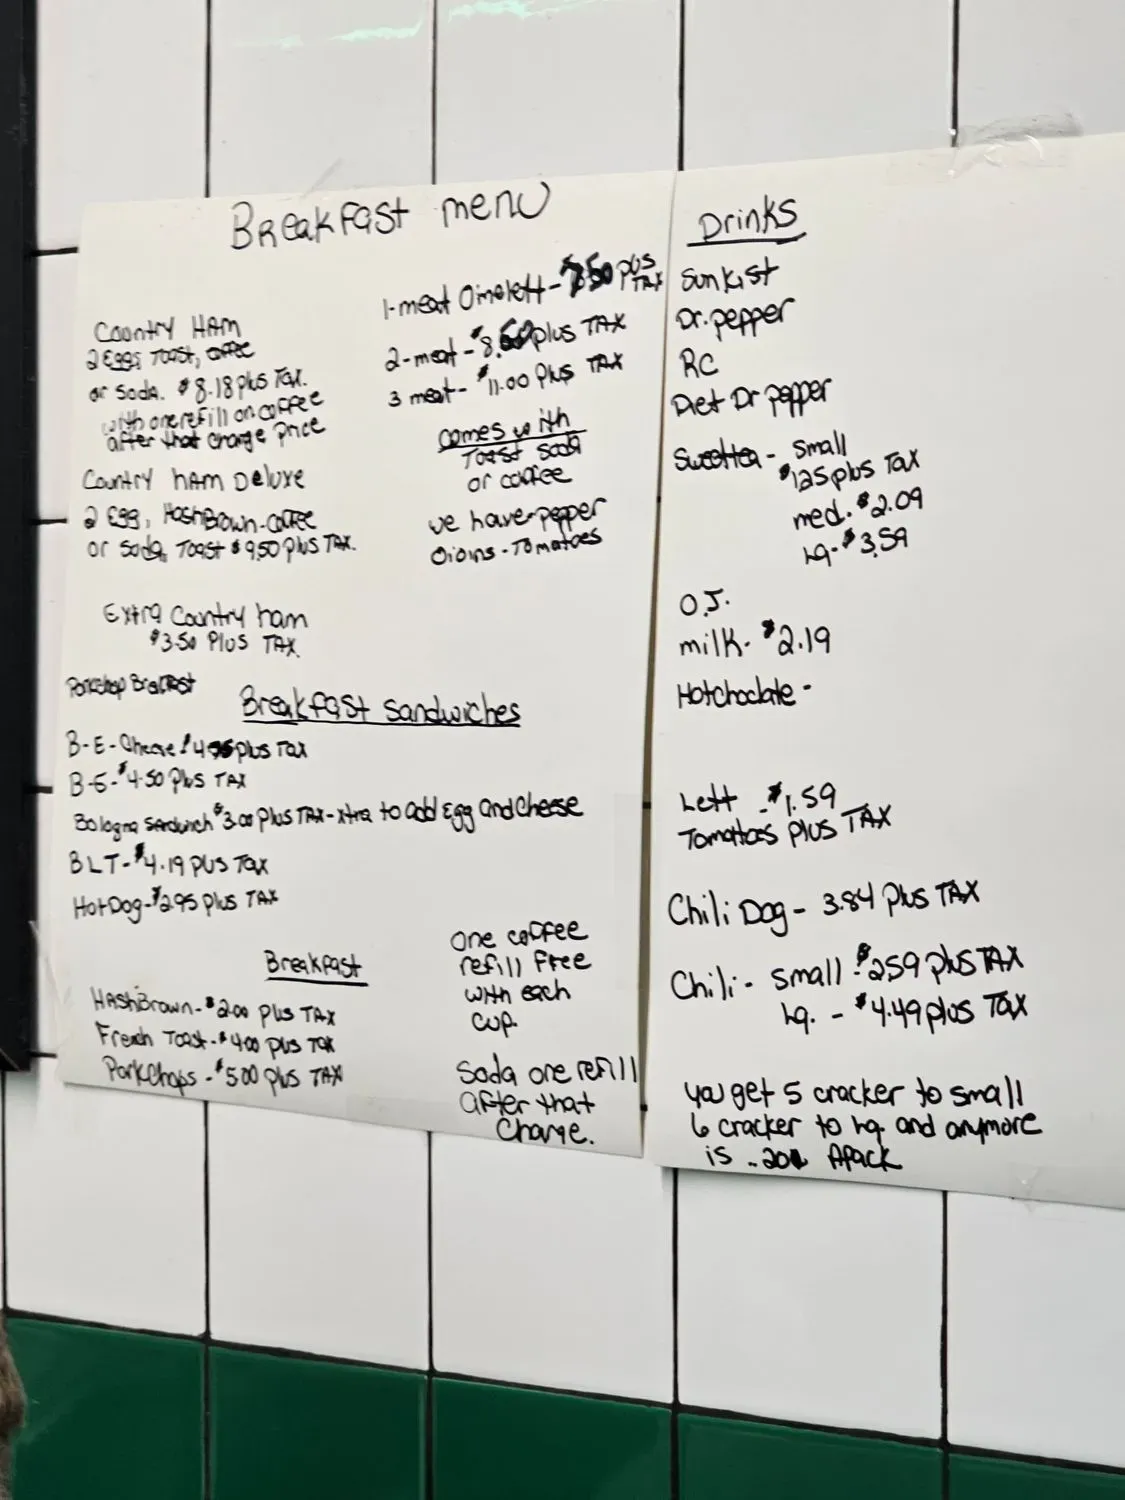 Breakfast menu
Country HAM
2 Eggs Toast, coffee
or Soda. $8.18 plus Tax.
with one refill on coffee
after that charge price
Country hAm Deluxe
2 Egg, HashBrown-coffee
or Soda, Toast $9.50 plus TAX.
Extra Country ham
$3.50 Plus TAX.
Porkchop
1-meat Omelett - plus
TAX
2-meat - plus TAX
3 meat - $11.00 Plus TAX
comes with
Toast soda
or coffee
we have-pepper
Oioins-Tomatoes
Breakfast Sandwiches
B-E-Cheese plus Tax
B-E-$4.50 Plus TAX
Bologna Sandwich $3.00 Plus TAX-xtra to add Egg and Cheese
BLT-$4.19 plus Tax
HotDog-$2.95 plus TAX
Breakfast
HAShBrown-$2.00 plus TAX
French Toast-$4.00 plus Tax
PorkChops-$5.00 plus TAX
One coffee
refill Free
with each
cup.
Soda one refill
after that
Charge.
Drinks
Sunkist
Dr. pepper
RC
Diet Dr pepper
Sweettea - Small
$1.25 plus Tax
med. $2.09
Lg-$3.59
O.J.
milk-$2.19
Hotchoclate-
Lett - $1.59
Tomatoes Plus TAX
Chili Dog - 3.84 Plus TAX
Chili - Small - $2.59 plus TAX
Lg. - $4.49 plus Tax
you get 5 cracker to small
6 cracker to Lg. and anymore
is Apack